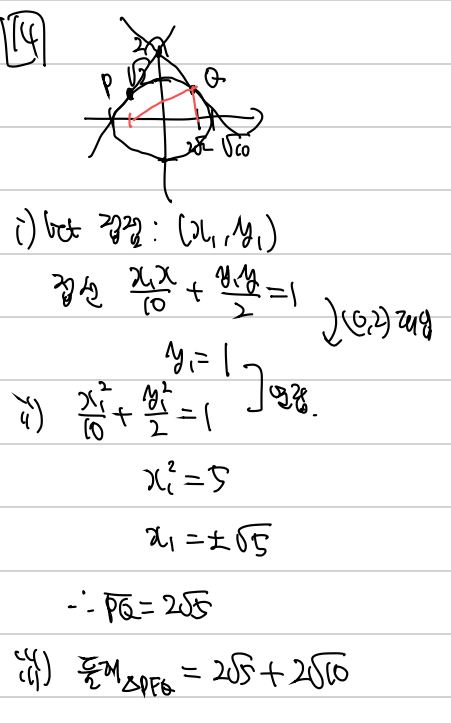 14
2
P √2 Q
2√2 √10
i) let 접점 : (x₁, y₁)
접선 x₁x/10 + y₁y/2 = 1
(0,2) 대입
y₁ = 1
ii) x₁²/10 + y₁²/2 = 1
연립.
x₁² = 5
x₁ = ±√5
∴ PQ = 2√5
iii) 둘레 △PFQ = 2√5 + 2√10